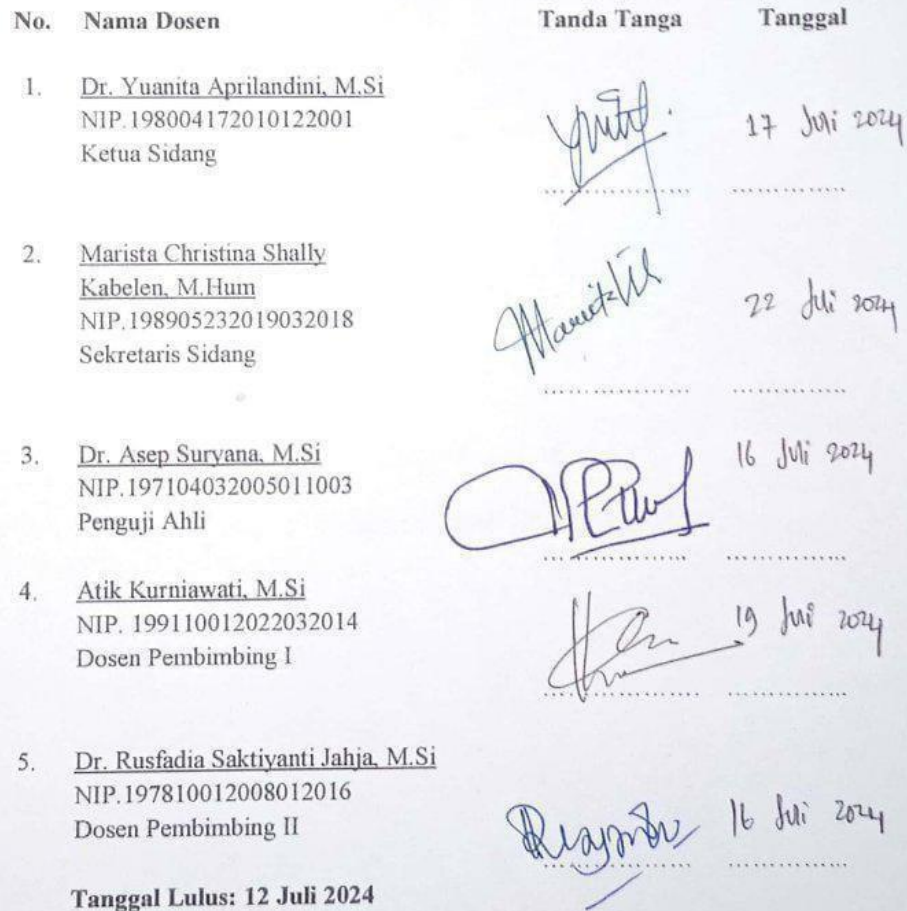 No. Nama Dosen Tanda Tanga Tanggal
1. Dr. Yuanita Aprilandini, M.Si
NIP.198004172010122001 17 Juli 2024
Ketua Sidang
2. Marista Christina Shally
Kabelen, M.Hum
NIP.198905232019032018 22 Juli 2024
Sekretaris Sidang
3. Dr. Asep Suryana, M.Si 16 Juli 2024
NIP.197104032005011003
Penguji Ahli
4. Atik Kurniawati, M.Si
NIP. 199110012022032014 19 Juli 2024
Dosen Pembimbing I
5. Dr. Rusfadia Saktiyanti Jahja, M.Si
NIP.197810012008012016
Dosen Pembimbing II 16 Juli 2024
Tanggal Lulus: 12 Juli 2024